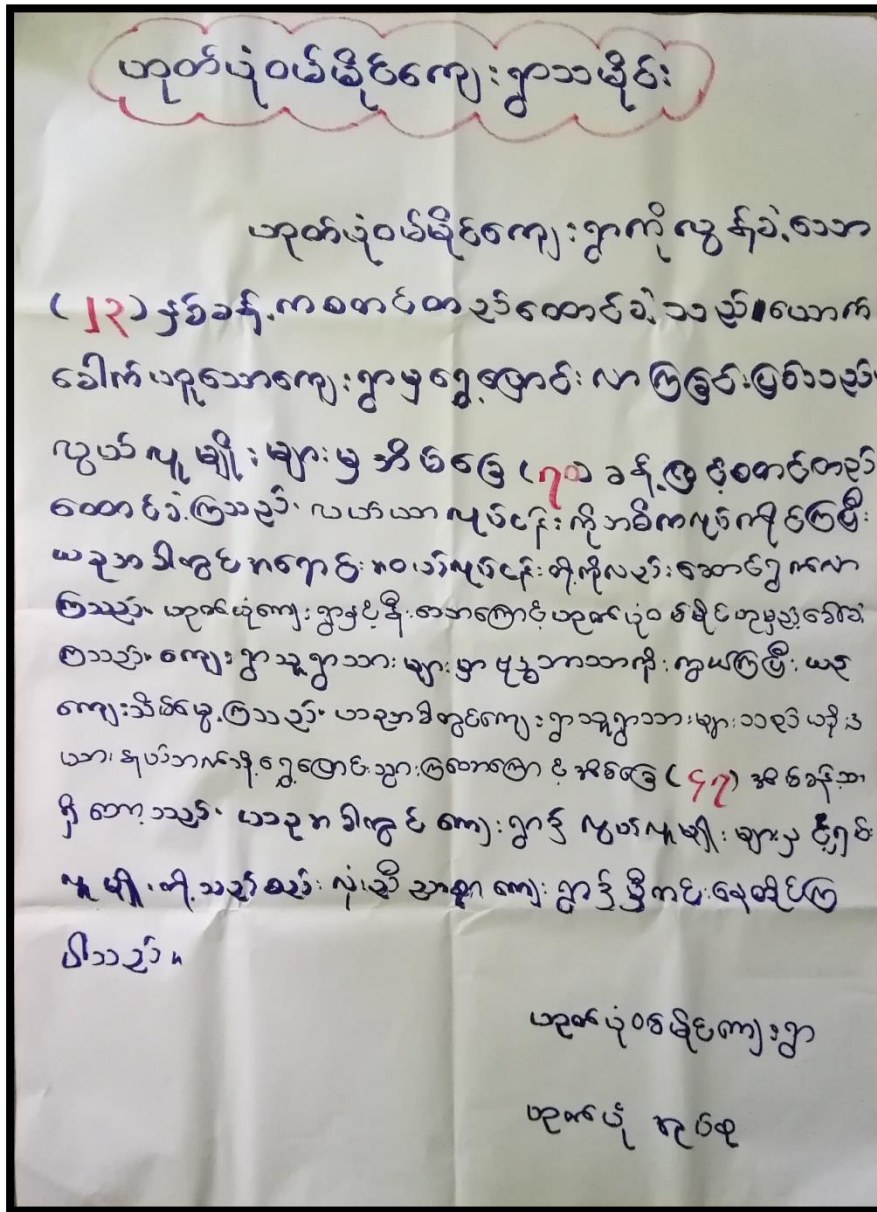 ဟုတ်ပုံဝမ်မိုင်ကျေးရွာသမိုင်း
ဟုတ်ပုံဝမ်မိုင်ကျေးရွာကိုလွန်ခဲ့သော
(၂၃)နှစ်ခန့်ကစတင်တည်ထောင်ခဲ့သည်။ယောက်
ခေါက်ဟူသောကျေးရွာမှရွှေ့ပြောင်းလာကြခြင်းဖြစ်သည်။
လွယ်လူမျိုးများမှအိမ်ခြေ(၇၀)ခန့်ဖြင့်စတင်တည်
ထောင်ခဲ့ကြသည်။လယ်ယာလုပ်ငန်းကိုအဓိကလုပ်ကိုင်ကြပြီး
ယခုအခါတွင်အရောင်းအဝယ်လုပ်ငန်းတို့ကိုလည်းဆောင်ရွက်လာ
ကြသည်။ဟုတ်ပုံကျေးရွာနှင့်နီးသောကြောင့်ဟုတ်ပုံဝမ်မိုင်ဟုမှည့်ခေါ်ခဲ့
ကြသည်။ကျေးရွာသူရွာသားများမှာဗုဒ္ဓဘာသာကိုးကွယ်ကြပြီး
ကြသည်။ယခုအခါတွင်ကျေးရွာသူရွာသားများသည်
ရွှေ့ပြောင်းသွားကြသောကြောင့်အိမ်ခြေ(၄၇)အိမ်ခန့်သာ
ရှိတော့သည်။ယခုအခါတွင်ကျေးရွာ၌လွယ်လူမျိုးများနှင့်ရှမ်း
လူမျိုးတို့သည်စည်းလုံးညီညာစွာကျေးရွာ၌မှီတင်းနေထိုင်ကြ
ပါသည်။
ဟုတ်ပုံဝမ်မိုင်ကျေးရွာ
ဟုတ်ပုံအုပ်စု